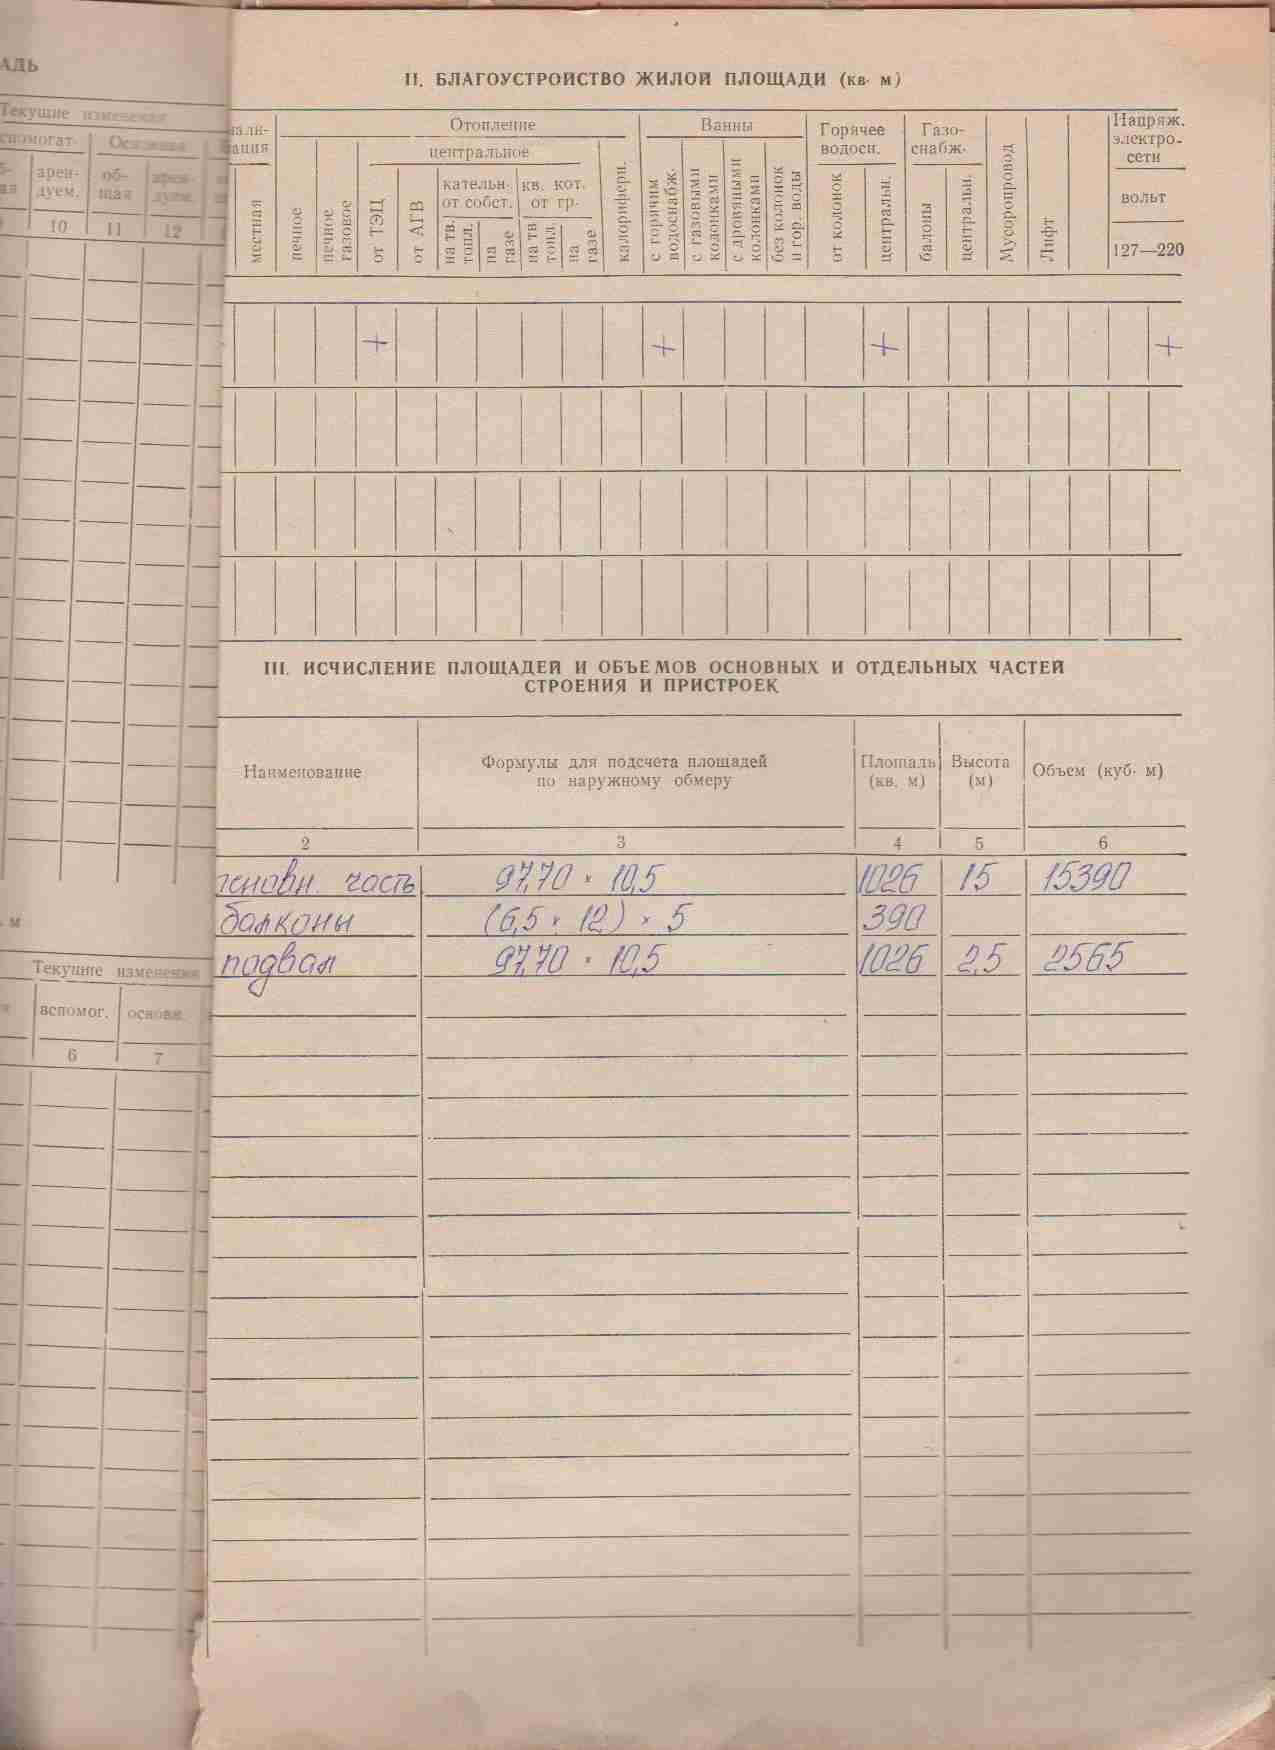 АДЬ
Текущие изменения
спомогат-
Основная
арен-
дуем.
об-
щая
арен-
дуем.
10 11 12
м
Текущие изменения
вспомог. основн.
6 7
II. БЛАГОУСТРОЙСТВО ЖИЛОЙ ПЛОЩАДИ (кв. м)
нали-
зация
Отопление
Ванны
Горячее
водосн.
Газо-
снабж.
Напряж.
электро-
сети
центральное
вольт
кательн.
от собст.
кв. кот.
от гр.
127—220
местная
печное
печное
газовое
от ТЭЦ
от АГВ
на тв.
топл.
на
газе
на тв
топл.
на
газе
калорифери.
с горячим
водоснабж.
с газовыми
колонками
с дровяными
колонками
без колонок
и гор. воды
от колонок
центральн.
балоны
центральн.
Мусоропровод
Лифт
+ + + +
III. ИСЧИСЛЕНИЕ ПЛОЩАДЕЙ И ОБЪЕМОВ ОСНОВНЫХ И ОТДЕЛЬНЫХ ЧАСТЕЙ
СТРОЕНИЯ И ПРИСТРОЕК
Наименование
Формулы для подсчета площадей
по наружному обмеру
Площадь
(кв. м)
Высота
(м)
Объем (куб. м)
2 3 4 5 6
основн. часть 97,70 × 10,5 1026 15 15390
балконы (6,5 × 12) × 5 390
подвал 97,70 × 10,5 1026 2,5 2565